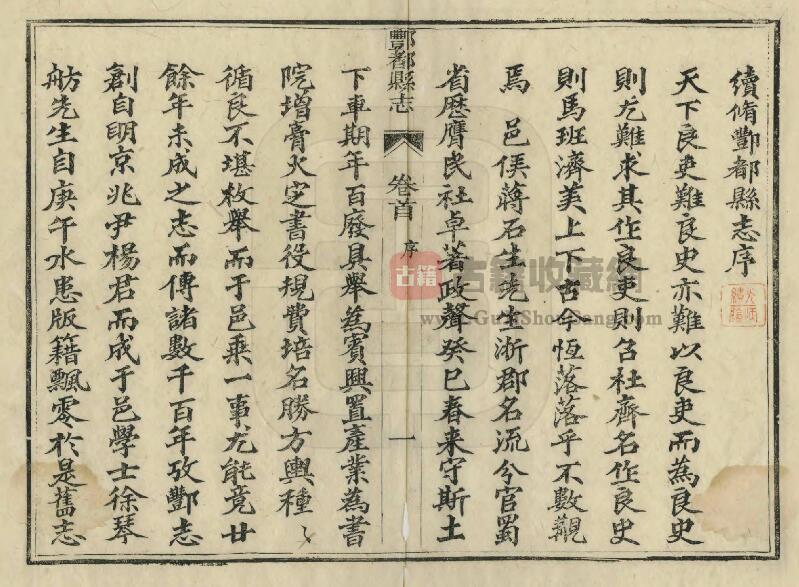 續脩酆都縣志序
天下良吏難良史亦難以良吏而為良史
則尤難求其作良吏則召杜齊名作良史
則馬班濟美上下古今恆落落乎不數觀
焉 邑侯蔣石生先生浙郡名流兮官蜀
省歴膺民社卓著政聲癸巳春来守斯土
酆都縣志
卷首
序
一
下車期年百廢具舉為賓興置產業為書
院增膏火定書役規費培名勝方輿種〻
循良不堪枚舉而于邑乗一事尤能竟廿
餘年未成之志而傳諸數千百年攷酆志
創自明京兆尹楊君而成于邑學士徐琴
舫先生自庚午水患版籍飄零於是舊志
古籍
古籍收藏网
www.GuJiShouCang.com